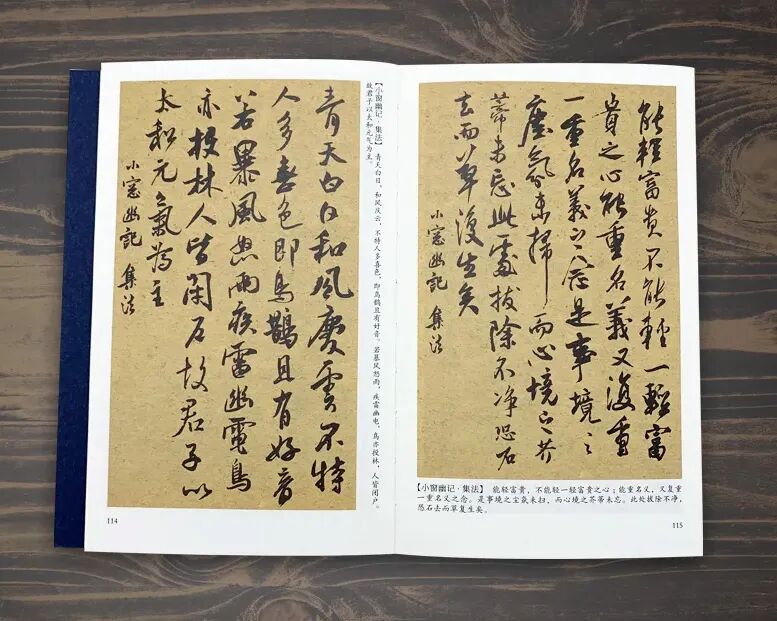 青天白日和風慶雲不特
人多喜色即鳥鵲且有好音
若暴風怒雨疾雷幽電鳥
亦投林人皆閉户故君子以
太和元氣為主
小窓幽記 集法
【小窗幽记·集法】 青天白日，和风庆云，不特人多喜色，即鸟鹊且有好音。若暴风怒雨，疾雷幽电，鸟亦投林，人皆闭户。
故君子以太和元气为主。
114
能輕富貴不能輕一輕富
貴之心能重名義又復重
一重名義之念是事境之
塵氛未掃而心境之芥
蒂未忘此處拔除不净恐石
去而草復生矣
小窓幽記 集法
【小窗幽记·集法】 能轻富贵，不能轻一轻富贵之心；能重名义，又复重
一重名义之念。是事境之尘氛未扫，而心境之芥蒂未忘。此处拔除不净，
恐石去而草复生矣。
115